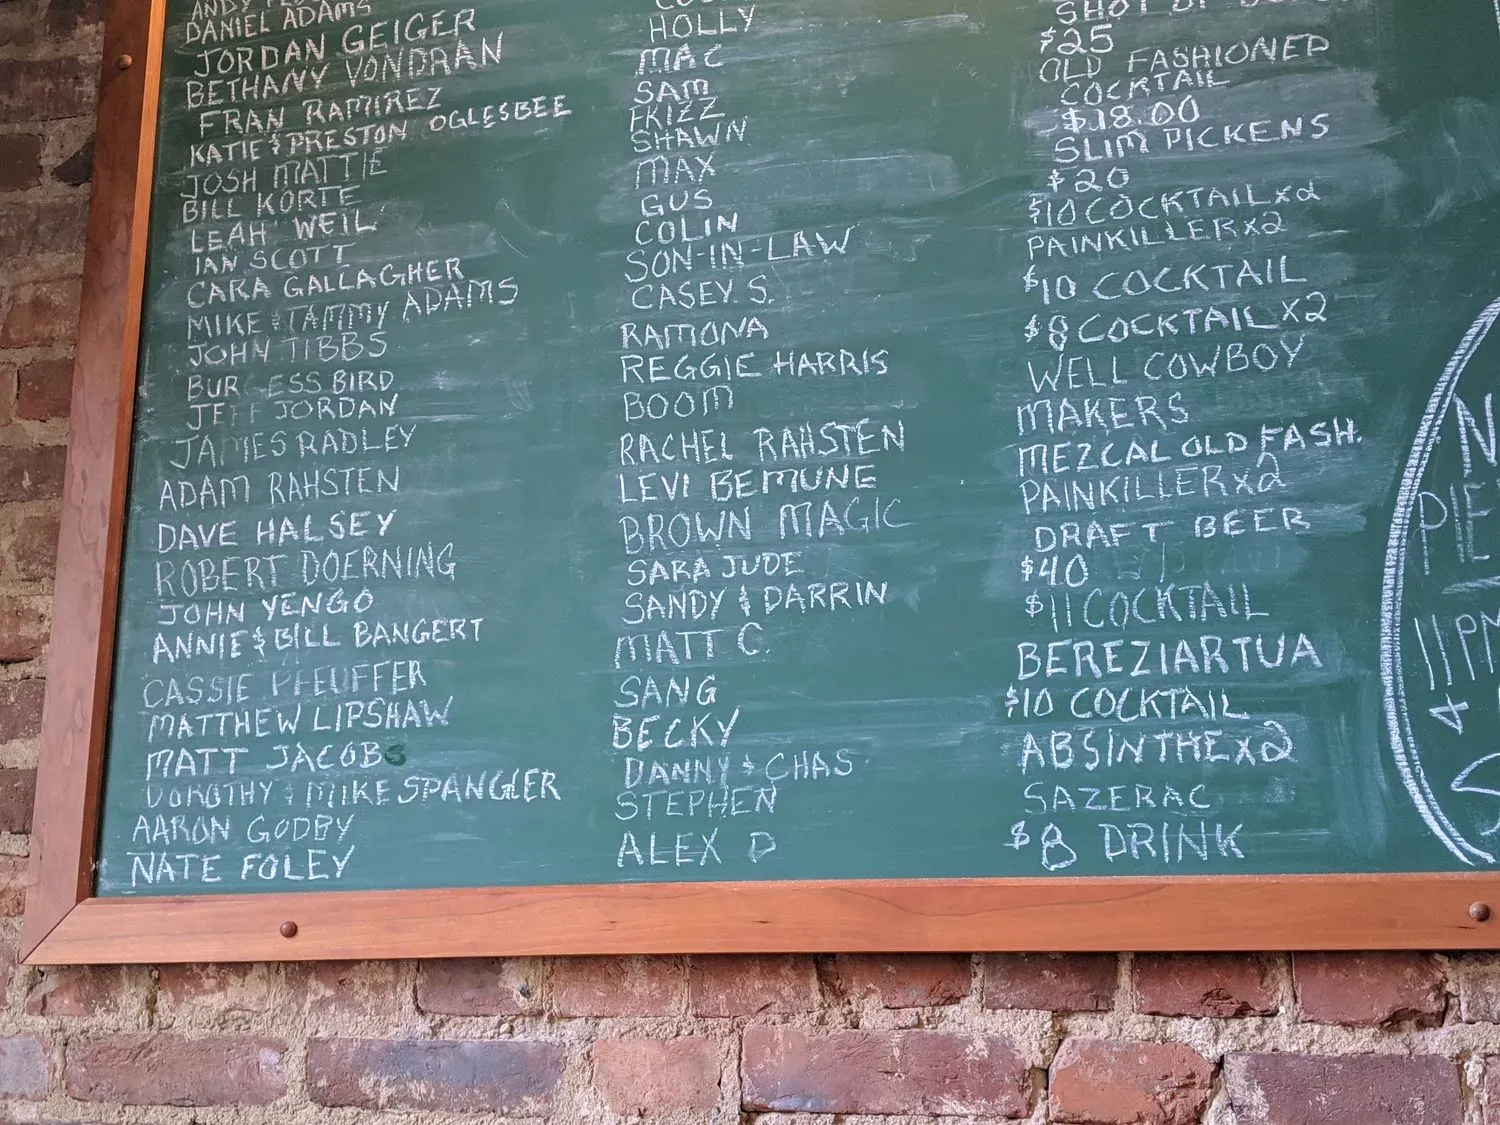 DANIEL ADAMS
JORDAN GEIGER
BETHANY VONDRAN
FRAN RAMIREZ
KATIE & PRESTON OGLESBEE
JOSH MATTIE
BILL KORTE
LEAH WEIL
IAN SCOTT
CARA GALLAGHER
MIKE & TAMMY ADAMS
JOHN TIBBS
BURGESS BIRD
JEFF JORDAN
JAMES RADLEY
ADAM RAHSTEN
DAVE HALSEY
ROBERT DOERNING
JOHN YENGO
ANNIE & BILL BANGERT
CASSIE PFEUFFER
MATTHEW LIPSHAW
MATT JACOBS
DOROTHY & MIKE SPANGLER
AARON GODBY
NATE FOLEY
HOLLY
MAC
SAM
FRIZZ
SHAWN
MAX
GUS
COLIN
SON-IN-LAW
CASEY S.
RAMONA
REGGIE HARRIS
BOOM
RACHEL RAHSTEN
LEVI BEMUNE
BROWN MAGIC
SARA JUDE
SANDY & DARRIN
MATT C.
SANG
BECKY
DANNY & CHAS
STEPHEN
ALEX D
SHOT OF
$25
OLD FASHIONED
COCKTAIL
$18.00
SLIM PICKENS
$20
$10 COCKTAIL x2
PAINKILLER x2
$10 COCKTAIL
$8 COCKTAIL X2
WELL COWBOY
MAKERS
MEZCAL OLD FASH.
PAINKILLER x2
DRAFT BEER
$40
$11 COCKTAIL
BEREZIARTUA
$10 COCKTAIL
ABSINTHE x2
SAZERAC
$8 DRINK
N
PIE
11PM